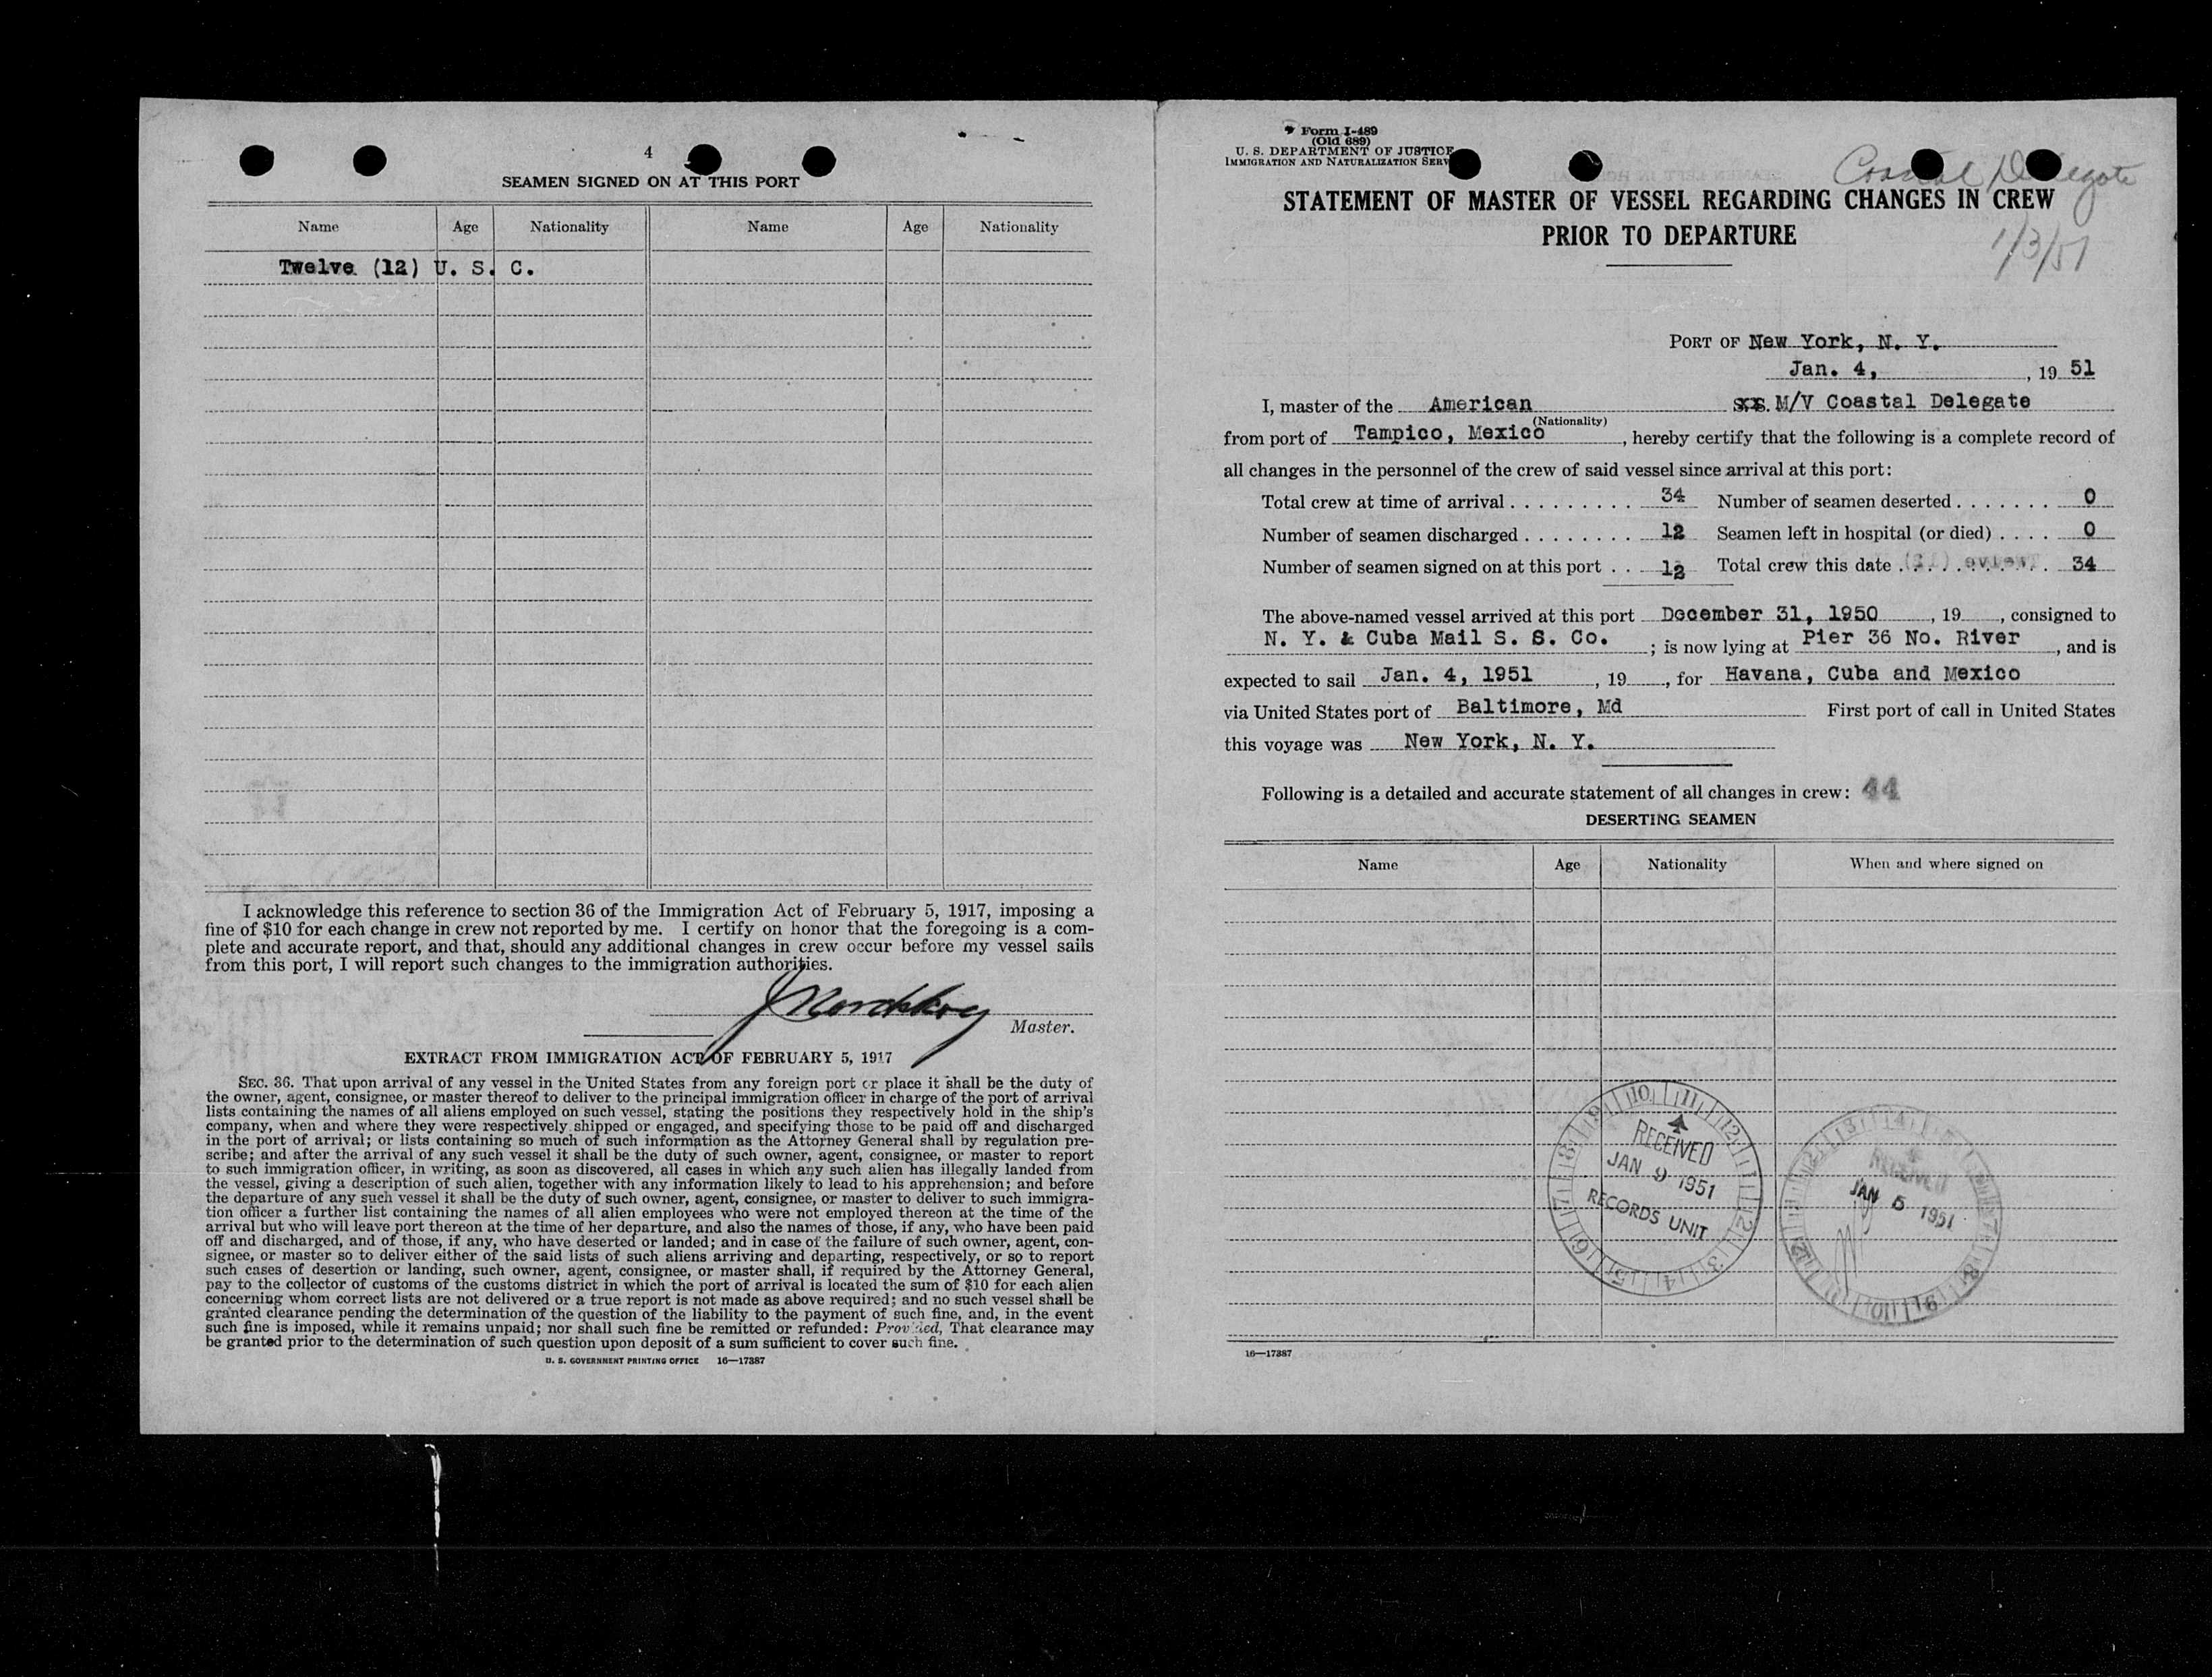 4
SEAMEN SIGNED ON AT THIS PORT
Name Age Nationality Name Age Nationality
Twelve (12) U. S. C.
I acknowledge this reference to section 36 of the Immigration Act of February 5, 1917, imposing a
fine of $10 for each change in crew not reported by me. I certify on honor that the foregoing is a com-
plete and accurate report, and that, should any additional changes in crew occur before my vessel sails
from this port, I will report such changes to the immigration authorities.
Master.
EXTRACT FROM IMMIGRATION ACT OF FEBRUARY 5, 1917
SEC. 36. That upon arrival of any vessel in the United States from any foreign port or place it shall be the duty of
the owner, agent, consignee, or master thereof to deliver to the principal immigration officer in charge of the port of arrival
lists containing the names of all aliens employed on such vessel, stating the positions they respectively hold in the ship's
company, when and where they were respectively shipped or engaged, and specifying those to be paid off and discharged
in the port of arrival; or lists containing so much of such information as the Attorney General shall by regulation pre-
scribe; and after the arrival of any such vessel it shall be the duty of such owner, agent, consignee, or master to report
to such immigration officer, in writing, as soon as discovered, all cases in which any such alien has illegally landed from
the vessel, giving a description of such alien, together with any information likely to lead to his apprehension; and before
the departure of any such vessel it shall be the duty of such owner, agent, consignee, or master to deliver to such immigra-
tion officer a further list containing the names of all alien employees who were not employed thereon at the time of the
arrival but who will leave port thereon at the time of her departure, and also the names of those, if any, who have been paid
off and discharged, and of those, if any, who have deserted or landed; and in case of the failure of such owner, agent, con-
signee, or master so to deliver either of the said lists of such aliens arriving and departing, respectively, or so to report
such cases of desertion or landing, such owner, agent, consignee, or master shall, if required by the Attorney General,
pay to the collector of customs of the customs district in which the port of arrival is located the sum of $10 for each alien
concerning whom correct lists are not delivered or a true report is not made as above required; and no such vessel shall be
granted clearance pending the determination of the question of the liability to the payment of such fine, and, in the event
such fine is imposed, while it remains unpaid; nor shall such fine be remitted or refunded: Provided, That clearance may
be granted prior to the determination of such question upon deposit of a sum sufficient to cover such fine.
U. S. GOVERNMENT PRINTING OFFICE 16—17387
Form I-489
(Old 689)
U. S. DEPARTMENT OF JUSTICE
IMMIGRATION AND NATURALIZATION SERV
Coastal Delegate
1/3/51
STATEMENT OF MASTER OF VESSEL REGARDING CHANGES IN CREW
PRIOR TO DEPARTURE
PORT OF New York, N. Y.
Jan. 4, , 19 51
I, master of the American S.S. M/V Coastal Delegate
(Nationality)
from port of Tampico, Mexico , hereby certify that the following is a complete record of
all changes in the personnel of the crew of said vessel since arrival at this port:
Total crew at time of arrival . . . . . . . . . 34 Number of seamen deserted . . . . . . . 0
Number of seamen discharged . . . . . . . . 12 Seamen left in hospital (or died) . . . . 0
Number of seamen signed on at this port . . 12 Total crew this date . . . . . . . . . . 34
The above-named vessel arrived at this port December 31, 1950 , 19 , consigned to
N. Y. & Cuba Mail S. S. Co. ; is now lying at Pier 36 No. River , and is
expected to sail Jan. 4, 1951 , 19 , for Havana, Cuba and Mexico
via United States port of Baltimore, Md First port of call in United States
this voyage was New York, N. Y.
Following is a detailed and accurate statement of all changes in crew: 44
DESERTING SEAMEN
Name Age Nationality When and where signed on
RECEIVED
JAN 9 1951
RECORDS UNIT
RECEIVED
JAN 5 1951
16—17387